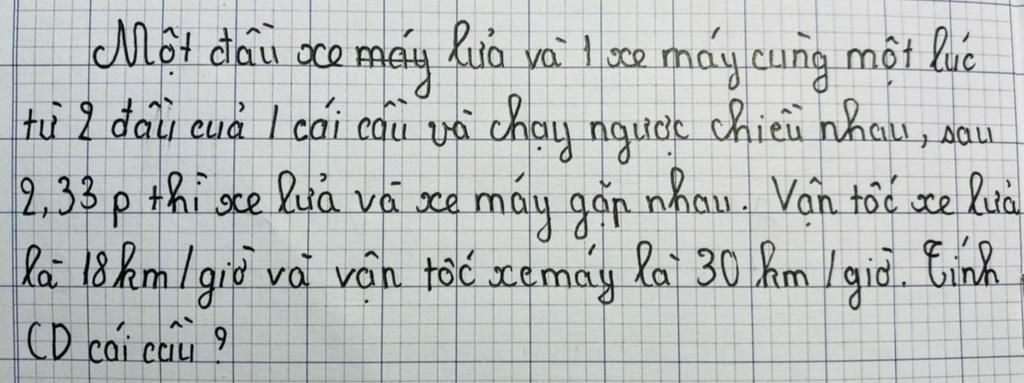 Một đầu xe máy lửa và 1 xe máy cùng một lúc
từ 2 đầu cuả 1 cái cầu và chạy ngược chiều nhau, sau
2,33 p thì xe lửa và xe máy gặp nhau. Vận tốc xe lửa
là 18 km/giờ và vận tốc xe máy là 30 km/giờ. Tính
CD cái cầu?